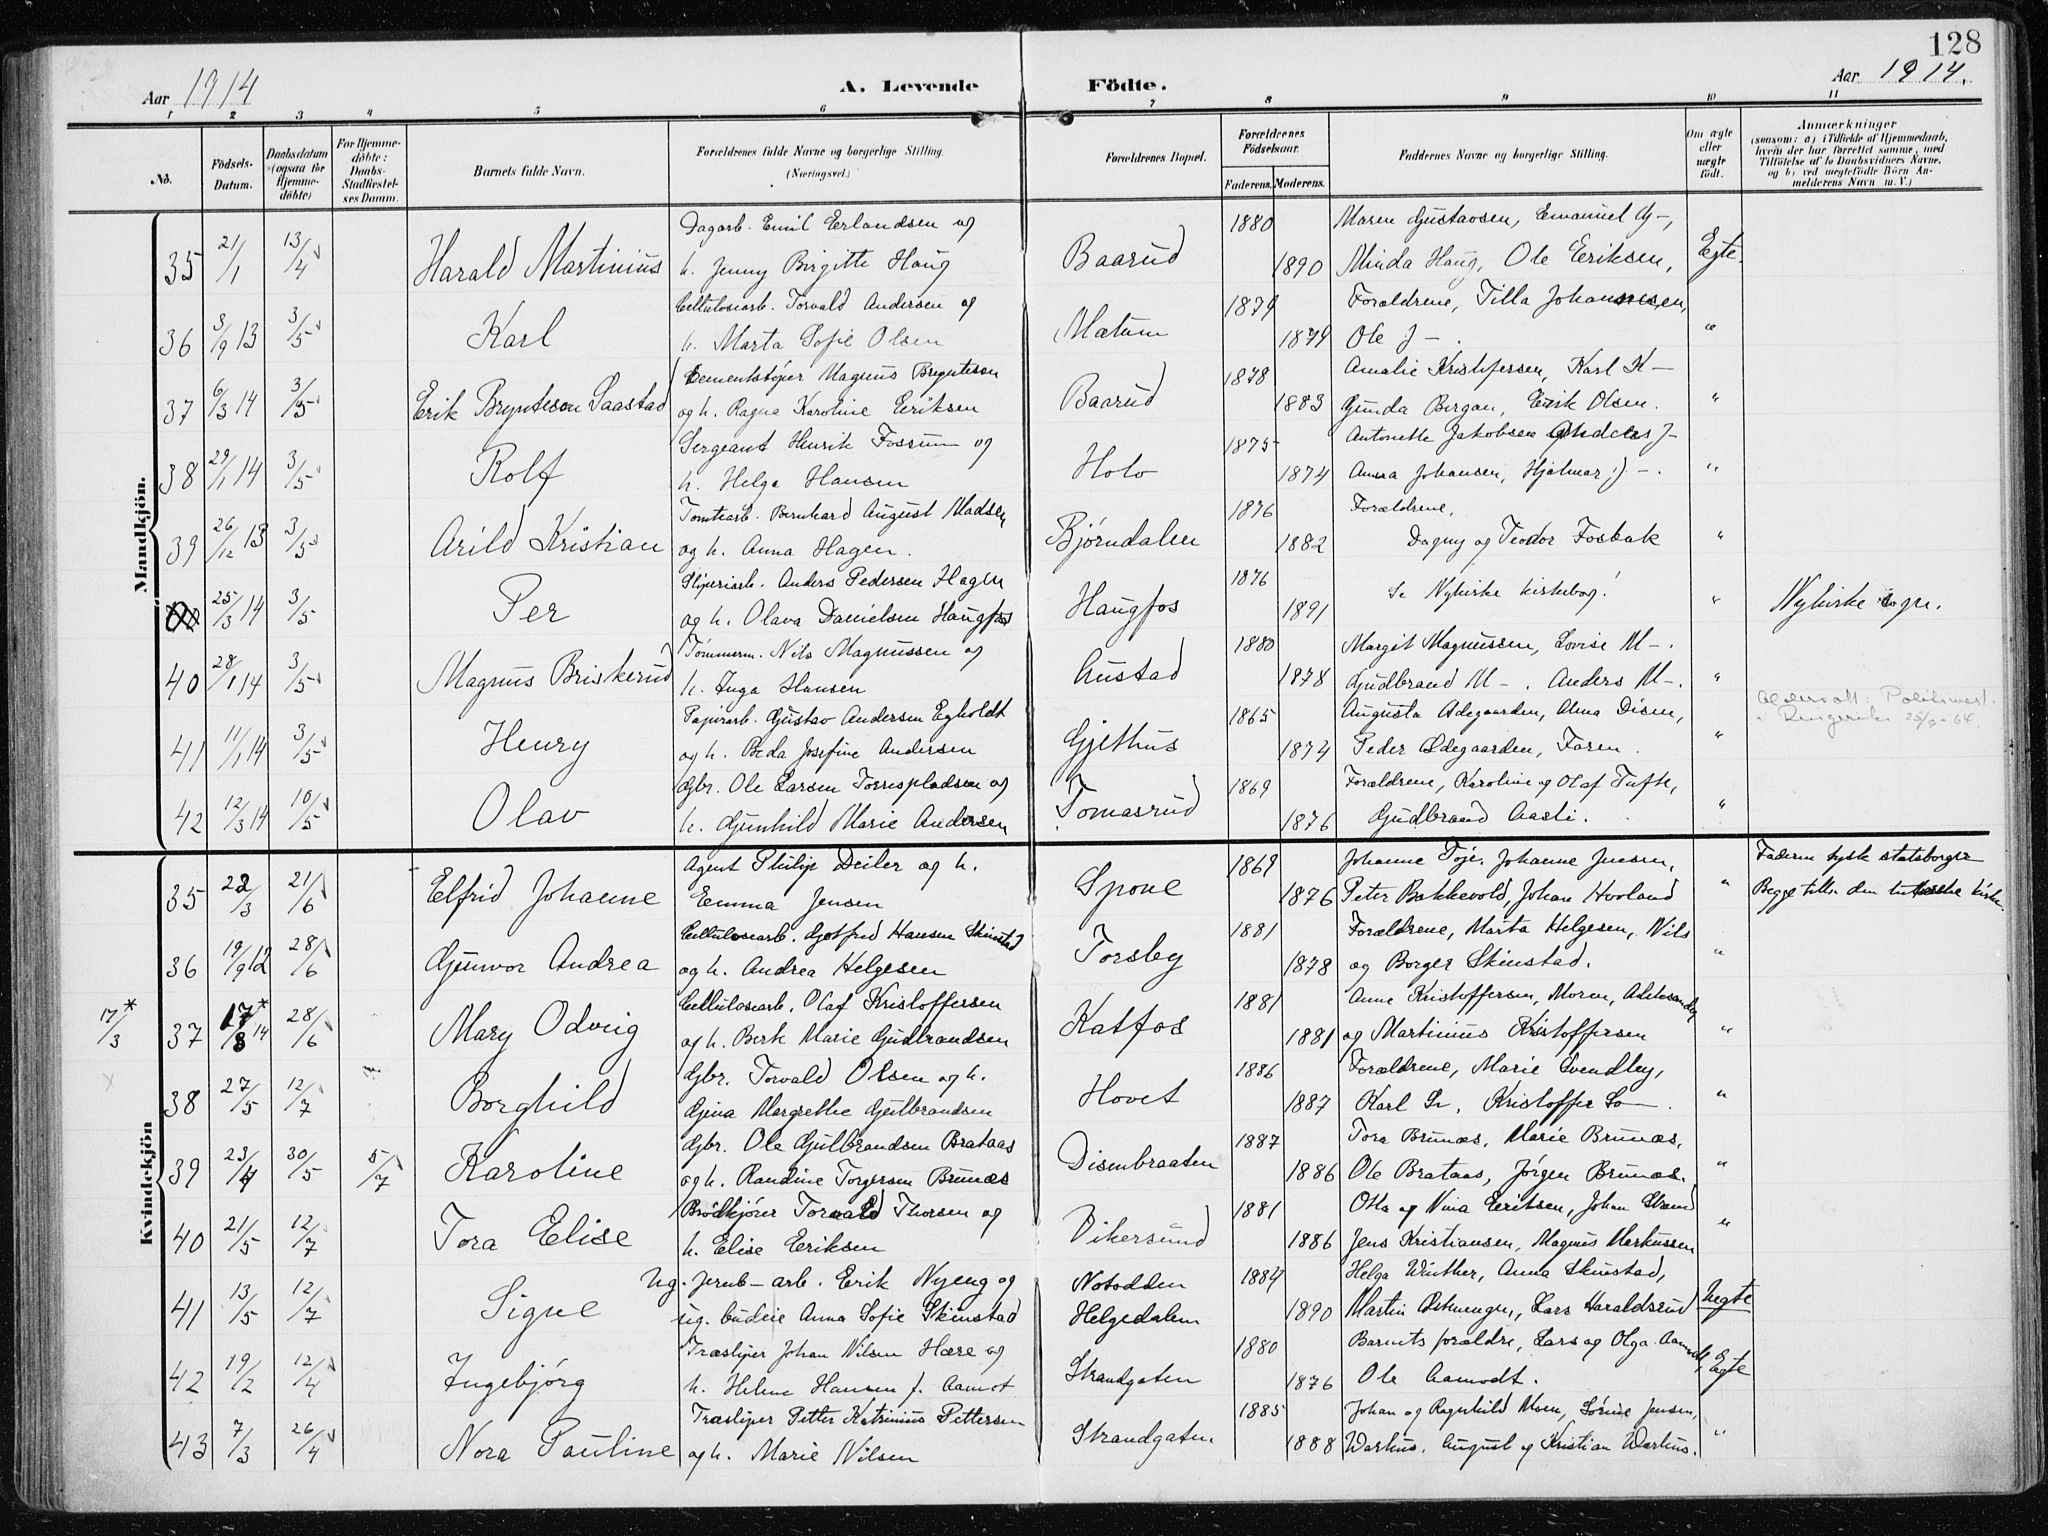 128
Aar 1914
A. Levende Födte.
Aar 1914.
1 2 3 4 5 6 7 8 9 10 11
No.
Födsels-Datum.
Daabsdatum (ogsaa för Hjemmedöbte)
For Hjemmedöbte: Daabs-Stadfæstelses Datum.
Barnets fulde Navn.
Forældrenes fulde Navne og borgerlige Stilling.
(Næringsvei.)
Forældrenes Bopæl.
Forældrenes Födselsaar.
Faderens. Moderens.
Faddernes Navne og borgerlige Stilling.
Om ægte eller uægte födt.
Anmærkninger
(saasom: a) i Tilfælde af Hjemmedaab, hvem der har forrettet samme, med Tilföielse af to Daabsvidners Navne, og b) ved uægtefödte Börn Anmelderens Navn m. V.)
Mandkjön.
Dagarb. Emil Erlandsen og 1880 Maren Gustavsen, Emanuel G-,
35 21/1 13/4 Harald Martinius h. Jenny Birgitte Haug Baarud 1890 Minda Haug, Ole Eriksen, Egte.
Cellulosearb. Torvald Andersen og 1879 Forældrene, Tilla Johannesen,
36 3/9 13 3/5 Karl h. Marta Sofie Olsen Matum 1879 Ole J-. "
Cementstøper Magnus Bryntesen 1878 Amalie Kristifersen, Karl K-
37 6/3 14 3/5 Erik Bryntesen Saastad og h. Ragna Karoline Eriksen Baarud 1883 Gunda Bergan, Erik Olsen. "
Sergeant Henrik Fossum og 1875 Antonette Jakobsen J-
38 29/1 14 3/5 Rolf h. Helga Hansen Holo 1874 Anna Johansen, Hjalmar J-. "
Tomtearb. Bernhard August Madsen 1876 Forældrene,
39 26/12 13 3/5 Arild Kristian og h. Anna Hagen. Bjørndalen 1882 Dagny og Teodor Fosbak "
Sliperiarb. Anders Pedersen Hagen 1876 Se Nykirke kirkebog!
25/3 14 3/5 Per og h. Olava Danielsen Haugfos Haugfos 1891 " Nykirke sogn.
Tømmerm. Nils Magnussen og 1880 Margit Magnussen, Lovise M-.
40 28/1 14 3/5 Magnus Briskerud h. Inga Hansen Gustad 1878 Gudbrand M-. Anders M-. "
Papirarb. Gustav Andersen Egholdt 1865 Augusta Ødegaarden, Alma Disen,
41 11/1 14 3/5 Henry og h. Beda Josefine Andersen Gjethus 1874 Peder Ødegaarden, Faren. "
Gbr. Ole Larsen Torrespladsen og 1869 Forældrene, Karoline og Olaf Tufte,
42 12/3 14 10/5 Olav h. Gunhild Marie Andersen Tomasrud 1876 Gudbrand Aasli. "
Kvindekjön
Agent Philip Deiler og h. 1869 Johanne Toje. Johanne Jensen, Faderen tysk statsborger
35 22/3 21/6 Elfrid Johanne Emma Jensen Spone 1876 Peter Bakkevold, Johan Hovland " Begge tilh. den lutherske kirke.
Cellulosearb. Gotfred Hansen Skinstad 1881 Forældrene, Marta Helgesen, Nils
36 19/9 12 28/6 Gunvor Andrea og h. Andrea Helgesen Torsby 1878 og Borger Skinstad. "
17*/3 Cellulosearb. Olaf Kristoffersen 1881 Anne Kristoffersen, Moren,
37 17*/3 14 28/6 Mary Odveig og h. Berte Marie Gudbrandsen Katfos 1881 og Martinius Kristoffersen "
Gbr. Torvald Olsen og h. 1886 Forældrene, Marie Svendby,
38 27/5 12/7 Borghild Gina Margrethe Gulbrandsen Hovet 1887 Karl Sv. Kristoffer So-. "
Gbr. Ole Gulbrandsen Brataas 1887 Tora Brunæs, Marie Brunæs,
39 23/4 30/5 5/7 Karoline og h. Randine Torgersen Brunæs Disenbraaten 1886 Ole Brataas, Jørgen Brunæs. "
Brødkjører Torvald Thorsen og 1881 Otta og Nina Eriksen, Johan Strand
40 21/5 12/7 Tora Elise h. Elise Eriksen Vikersund 1886 Jens Kristiansen, Magnus Markussen "
Ug. Jernb-arb. Erik Nyeng og Notodden 1884 Helga Winther, Anna Skinstad,
41 13/5 12/7 Signe ug. budeie Anna Sofie Skinstad Helgedalen 1890 Martin Lars Haraldsrud Uegte
Træsliper Johan Nilsen Hære og 1880 Barnets forældre, Lars og Olga
42 19/2 12/4 Ingebjørg h. Helene Hansen f. Aamot Strandgaten 1876 Ole Aamodt. Egte
Træsliper Petter Katrinius Pettersen 1885 Johan og Ragnhild Moen, Sørine Jensen,
43 7/3 26/4 Nora Pauline og h. Marie Nilsen Strandgaten 1888 Warhus. August og Kristian Warhus. "